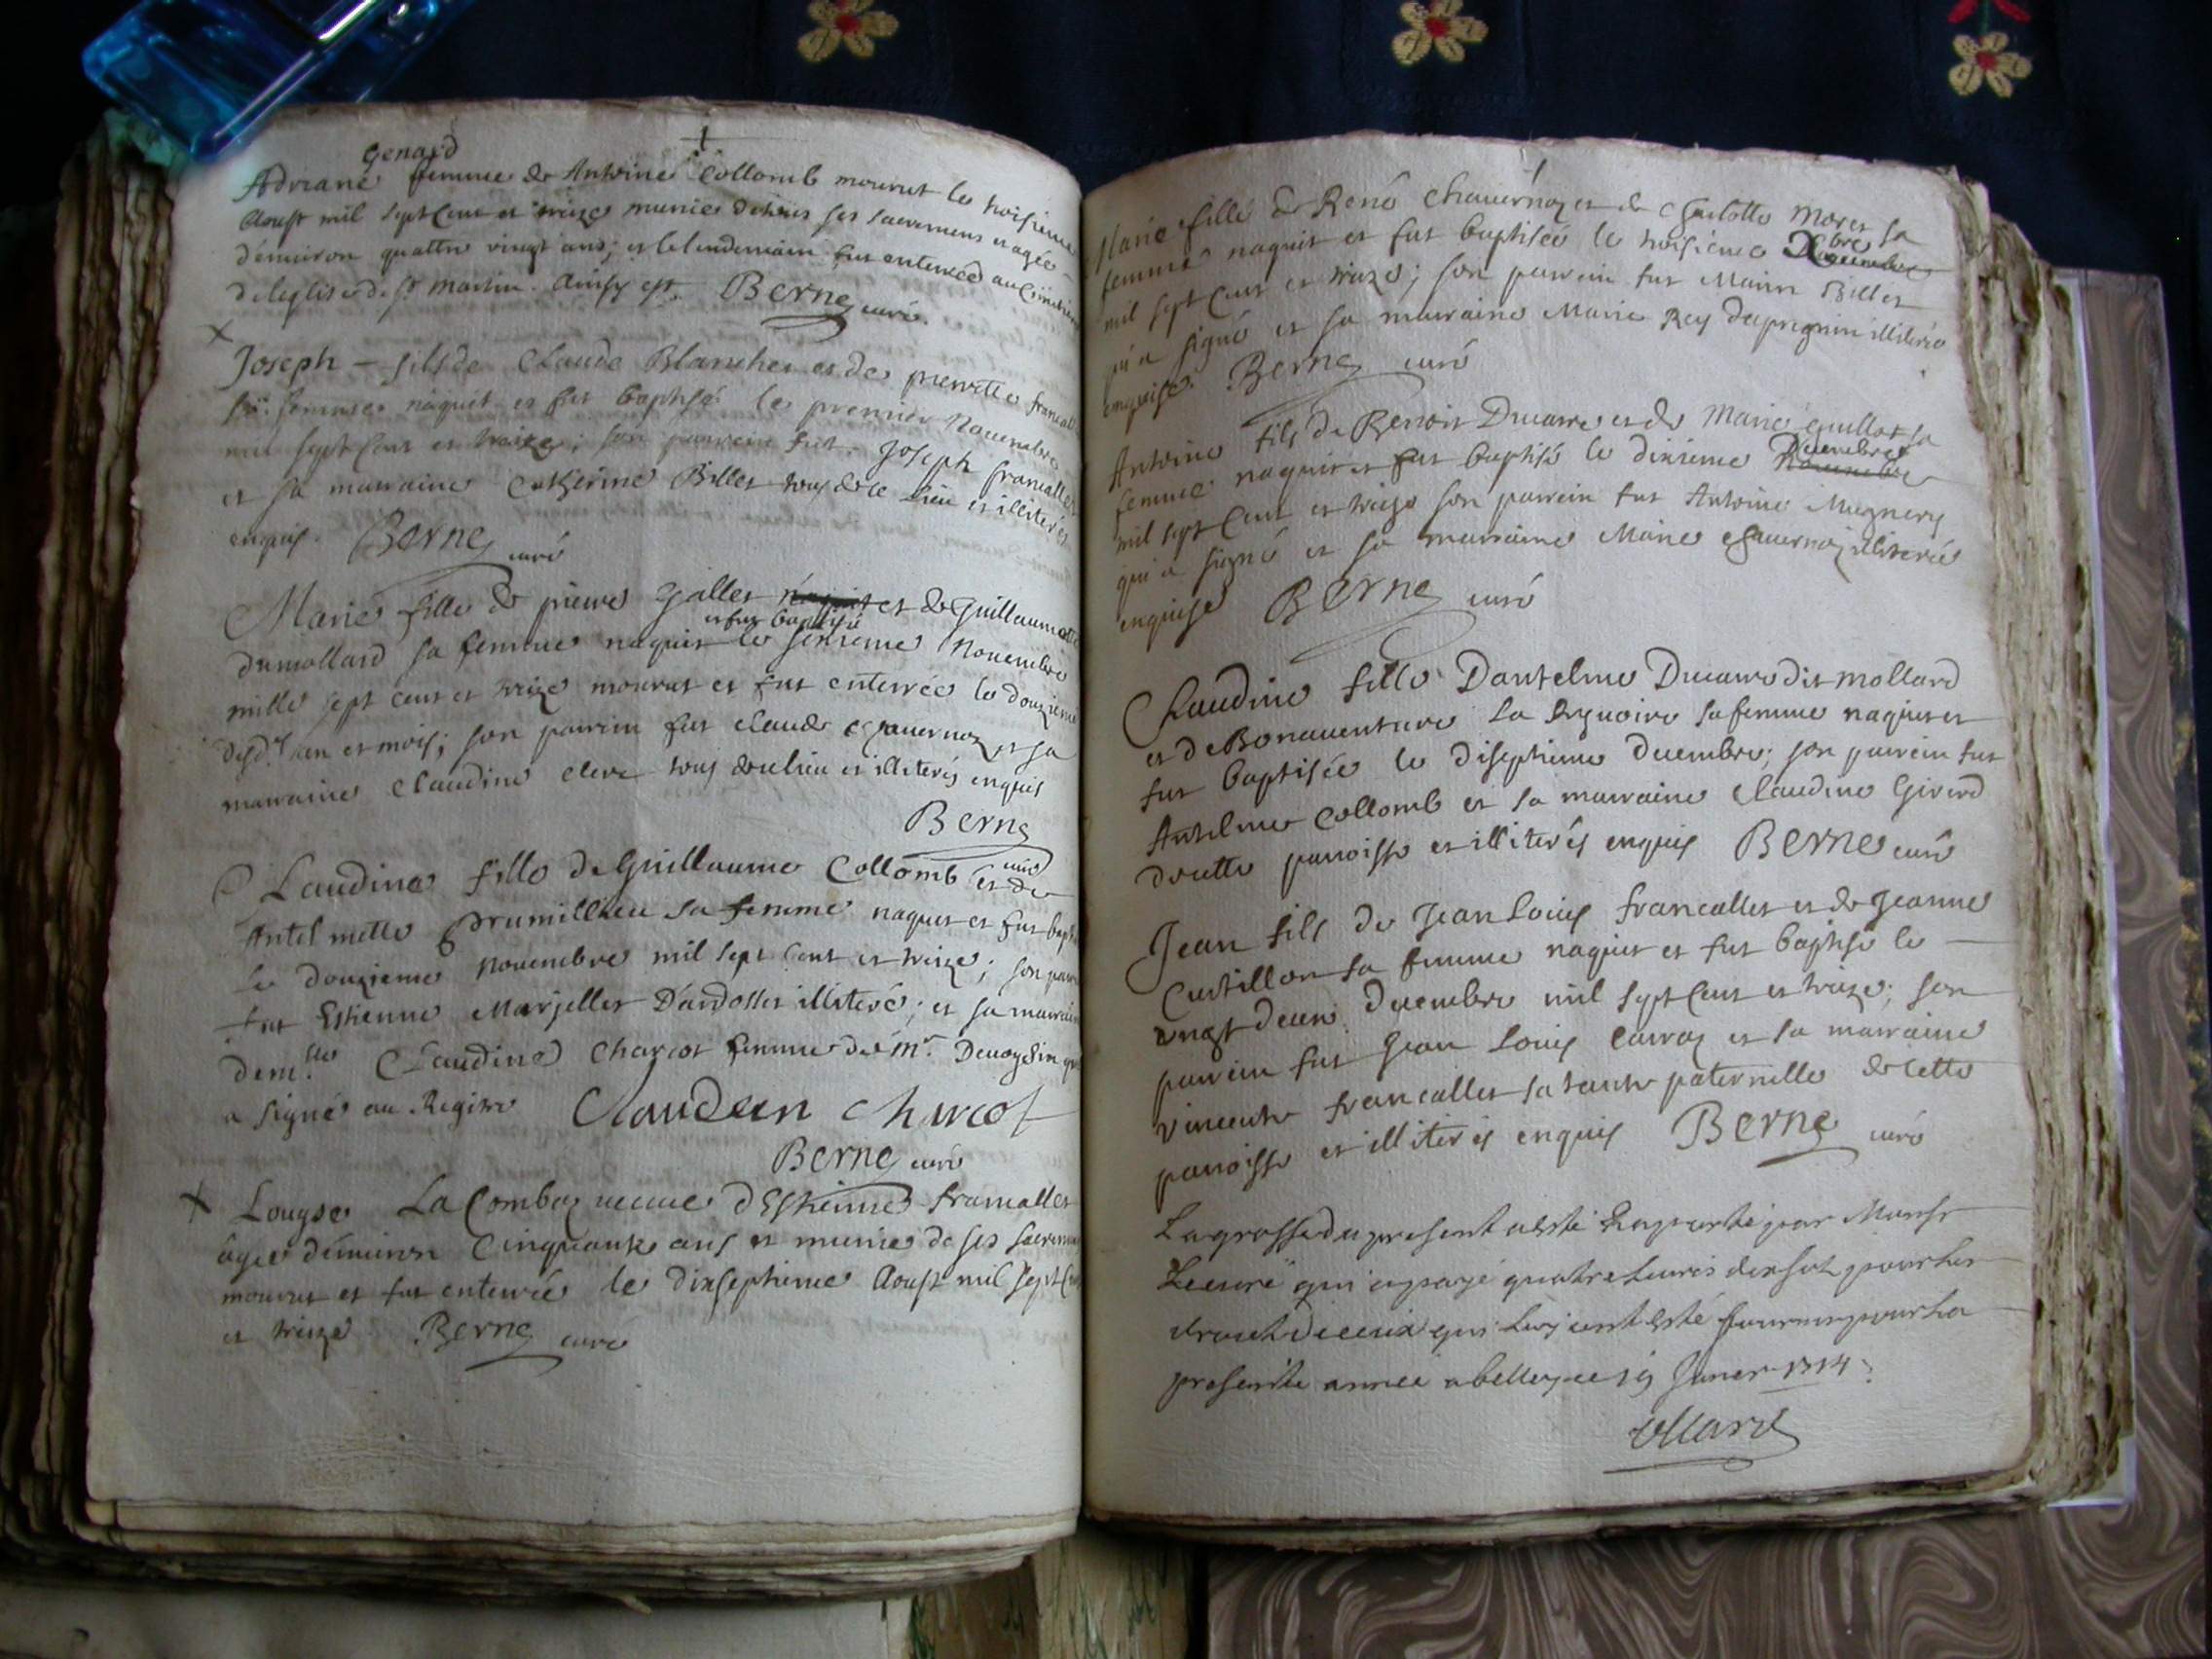 Genard
Adriane femme de Antoine Collomb mourut le troisieme
Aoust mil sept cent et treize munie de tous ses sacremens et agée
d'environ quattre vingt ans; et le lendemain fut enterrée au cimetiere
de l'eglise de St martin. Ainsy est Berne curé.
Joseph fils de Claude Blanchet et de pierrette francallet
sa femme naquit et fut baptisé le premier Novembre
mil sept cent et treize; son parrein fut Joseph francallet
et sa marraine Catherine Billet tous de ce lieu et illiterés
enquis. Berne curé
Marie fille de pierre Gallet naquit et de Guillaumette
et fut baptisé
Dumollard sa femme naquit le Novembre
mille sept cent et treize mourut et fut enterrée le douzieme
desd. an et mois; son parrein fut Claude Chavernoz et sa
marraine Claudine Clerc tous du lieu et illiterés enquis
Berne
curé
Claudine fille de Guillaume Collomb et de
Antelmette prumillieu sa femme naquit et fut
le douzieme Novembre mil sept cent et treize; son
fut Estienne Marjollet D'andosset illiteré; et sa
demlle Claudine Charcot femme de mr.
a signé au Registre Claudeen Charcot
Berne curé
Louyse La Combaz veuve d'Estienne francallet
agée d'environ Cinquante ans et munie de ses
mourut et fut enterrée le dixseptieme Aoust mil sept
et treize Berne curé
Marie fille de René Chavernoz et de Guilotte Moret sa
bre
femme naquit et fut baptisée le troisieme X
mil sept cent et treize; son parrein fut Billet
qui a signé et sa marraine Marie Rey illiterée
enquise. Berne curé
Antoine fils de Benoit Ducarre et de Marie guillot sa
Decembre
femme naquit et fut baptisé le dixieme Novembre
mil sept cent et treize son parrein fut Antoine Mugnery
qui a signé et sa marraine Marie Chavernoz illiterée
enquise Berne curé
Claudine fille D'antelme Ducarre dit mollard
et de Bonaventure La sa femme naquit et
fut baptisée le diseptieme Decembre; son parrein fut
Antelme Collomb et sa marraine Claudine Girerd
de cette parroisse et illiterés enquis Berne curé
Jean fils de Jean Louis francallet et de Jeanne
Castillon sa femme naquit et fut baptisé le
vingt deux decembre mil sept cent et treize; son
parrein fut Jean Louis Carraz et sa marraine
vincente francallet sa tante paternelle de cette
parroisse et illiterés enquis Berne curé
La grosse du present a esté raportée par Monsr
Le curé qui a payé quatre livres dix sols pour les
droits de ceux qui luy ont esté fournis pour la
presente année a belley ce 19 Janer 1714